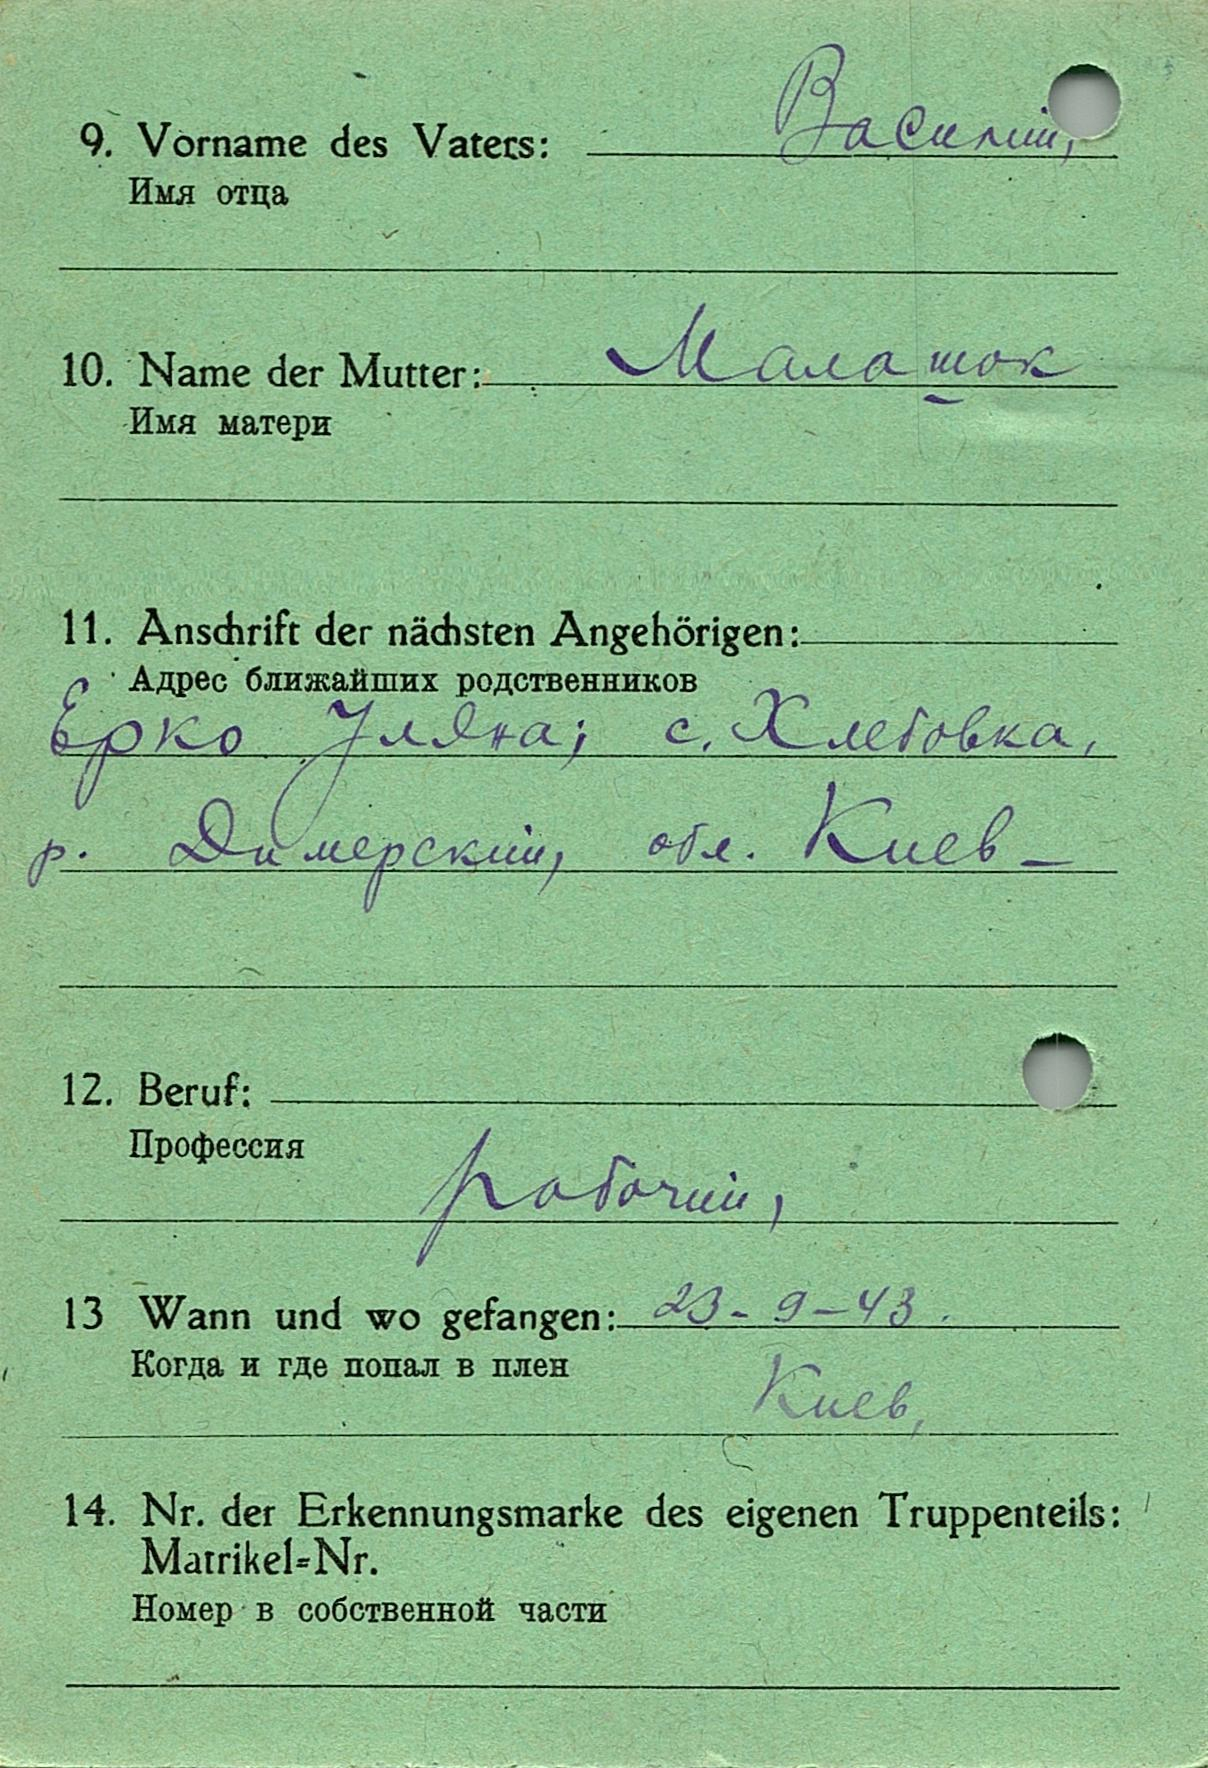 9. Vorname des Vaters: Василий,
Имя отца
10. Name der Mutter: Малашок
Имя матери
11. Anschrift der nächsten Angehörigen:
Адрес ближайших родственников
Ерко Уляна; с. Хлебовка,
р. Димерский, обл. Киев –
12. Beruf:
Профессия
рабочий,
13 Wann und wo gefangen: 23-9-43.
Когда и где попал в плен
Киев,
14. Nr. der Erkennungsmarke des eigenen Truppenteils:
Matrikel=Nr.
Номер в собственной части